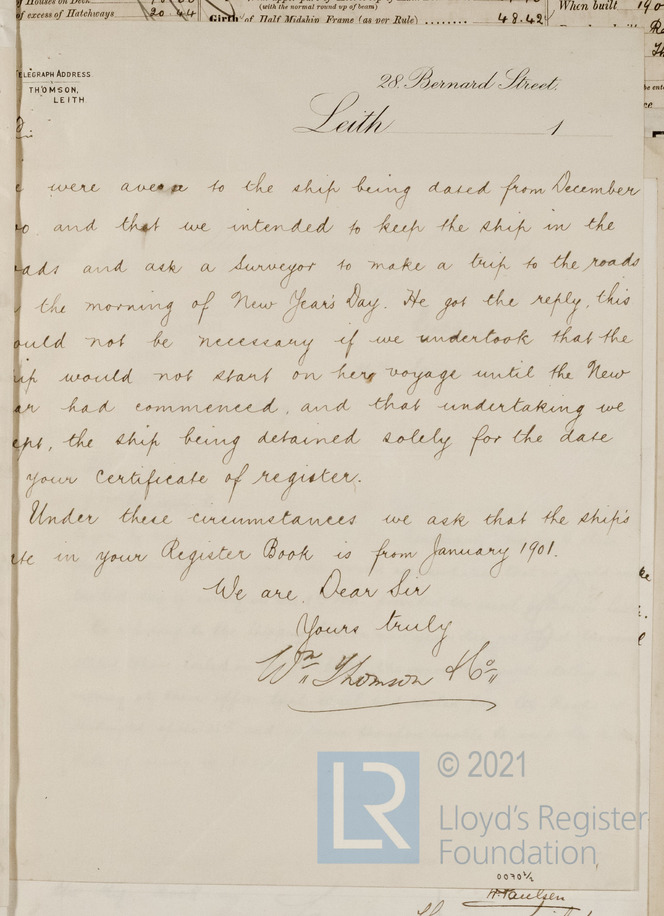 of Houses on Deck
of excess of Hatchways 20.44
(with the normal round up of beam)
Girth of Half Midship Frame (as per Rule) ........ 48.42
When built 190
TELEGRAPH ADDRESS
THOMSON,
LEITH.
28, Bernard Street.
Leith 1
were averse to the ship being dated from December
and that we intended to keep the ship in the
ads and ask a Surveyor to make a trip to the roads
the morning of New Year's Day. He got the reply, this
ould not be necessary if we undertook that the
ip would not start on her voyage until the New
ar had commenced, and that undertaking we
ept, the ship being detained solely for the date
your certificate of register.
Under these circumstances we ask that the ship's
te in your Register Book is from January 1901.
We are, Dear Sir
Yours truly
Wm Thomson & Co
© 2021
LR
Lloyd's Register
Foundation
0070½
H. Paulsen